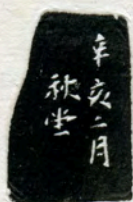 辛亥二月
秋堂